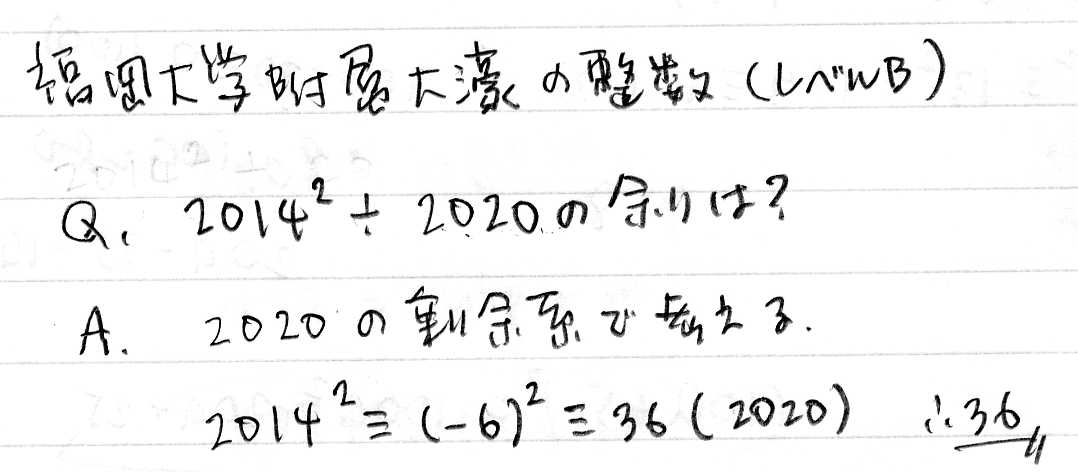 福岡大学附属大濠の整数(レベルB)
Q. 2014² ÷ 2020の余りは?
A. 2020の剰余系で考える.
2014² ≡ (-6)² ≡ 36 (2020) ∴36